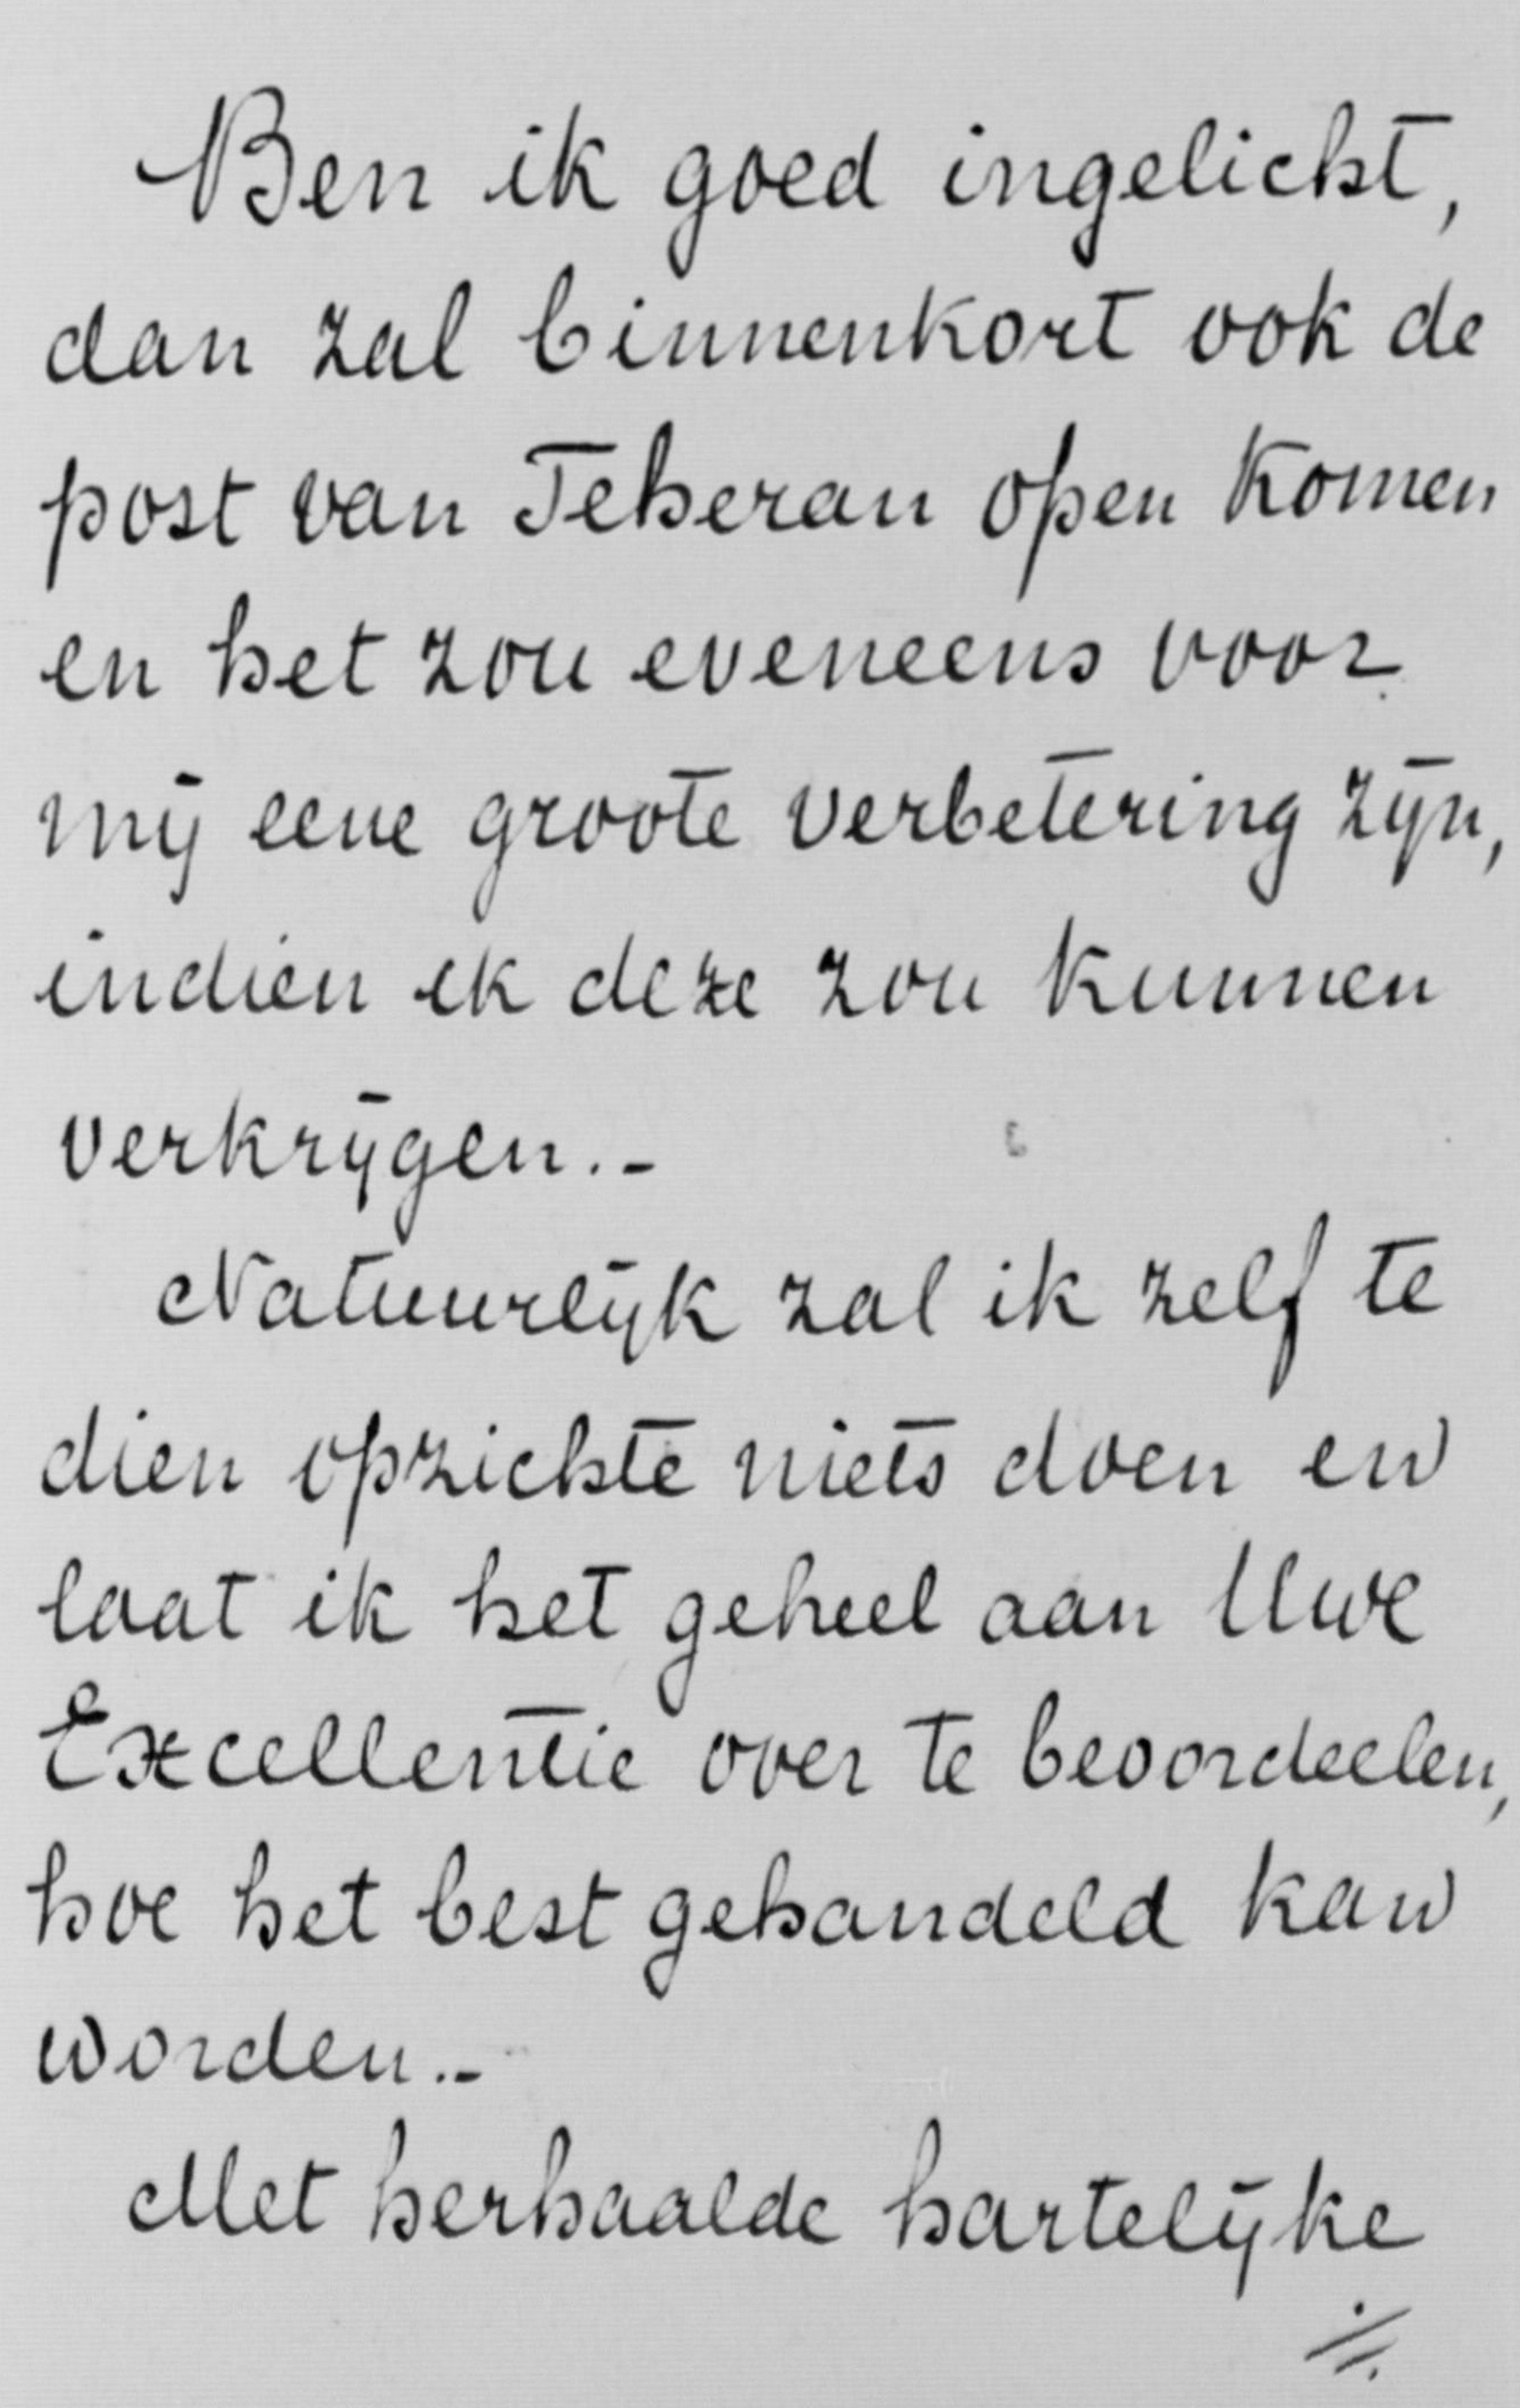 Ben ik goed ingelicht,
dan zal binnenkort ook de
post van Teheran open komen
en het zou eveneens voor
mij eene groote verbetering zijn,
indien ik deze zou kunnen
verkrijgen.-
Natuurlijk zal ik zelf te
dien opzichte niets doen en
laat ik het geheel aan Uwe
Excellentie over te beoordeelen,
hoe het best gehandeld kan
worden.-
Met herhaalde hartelijke